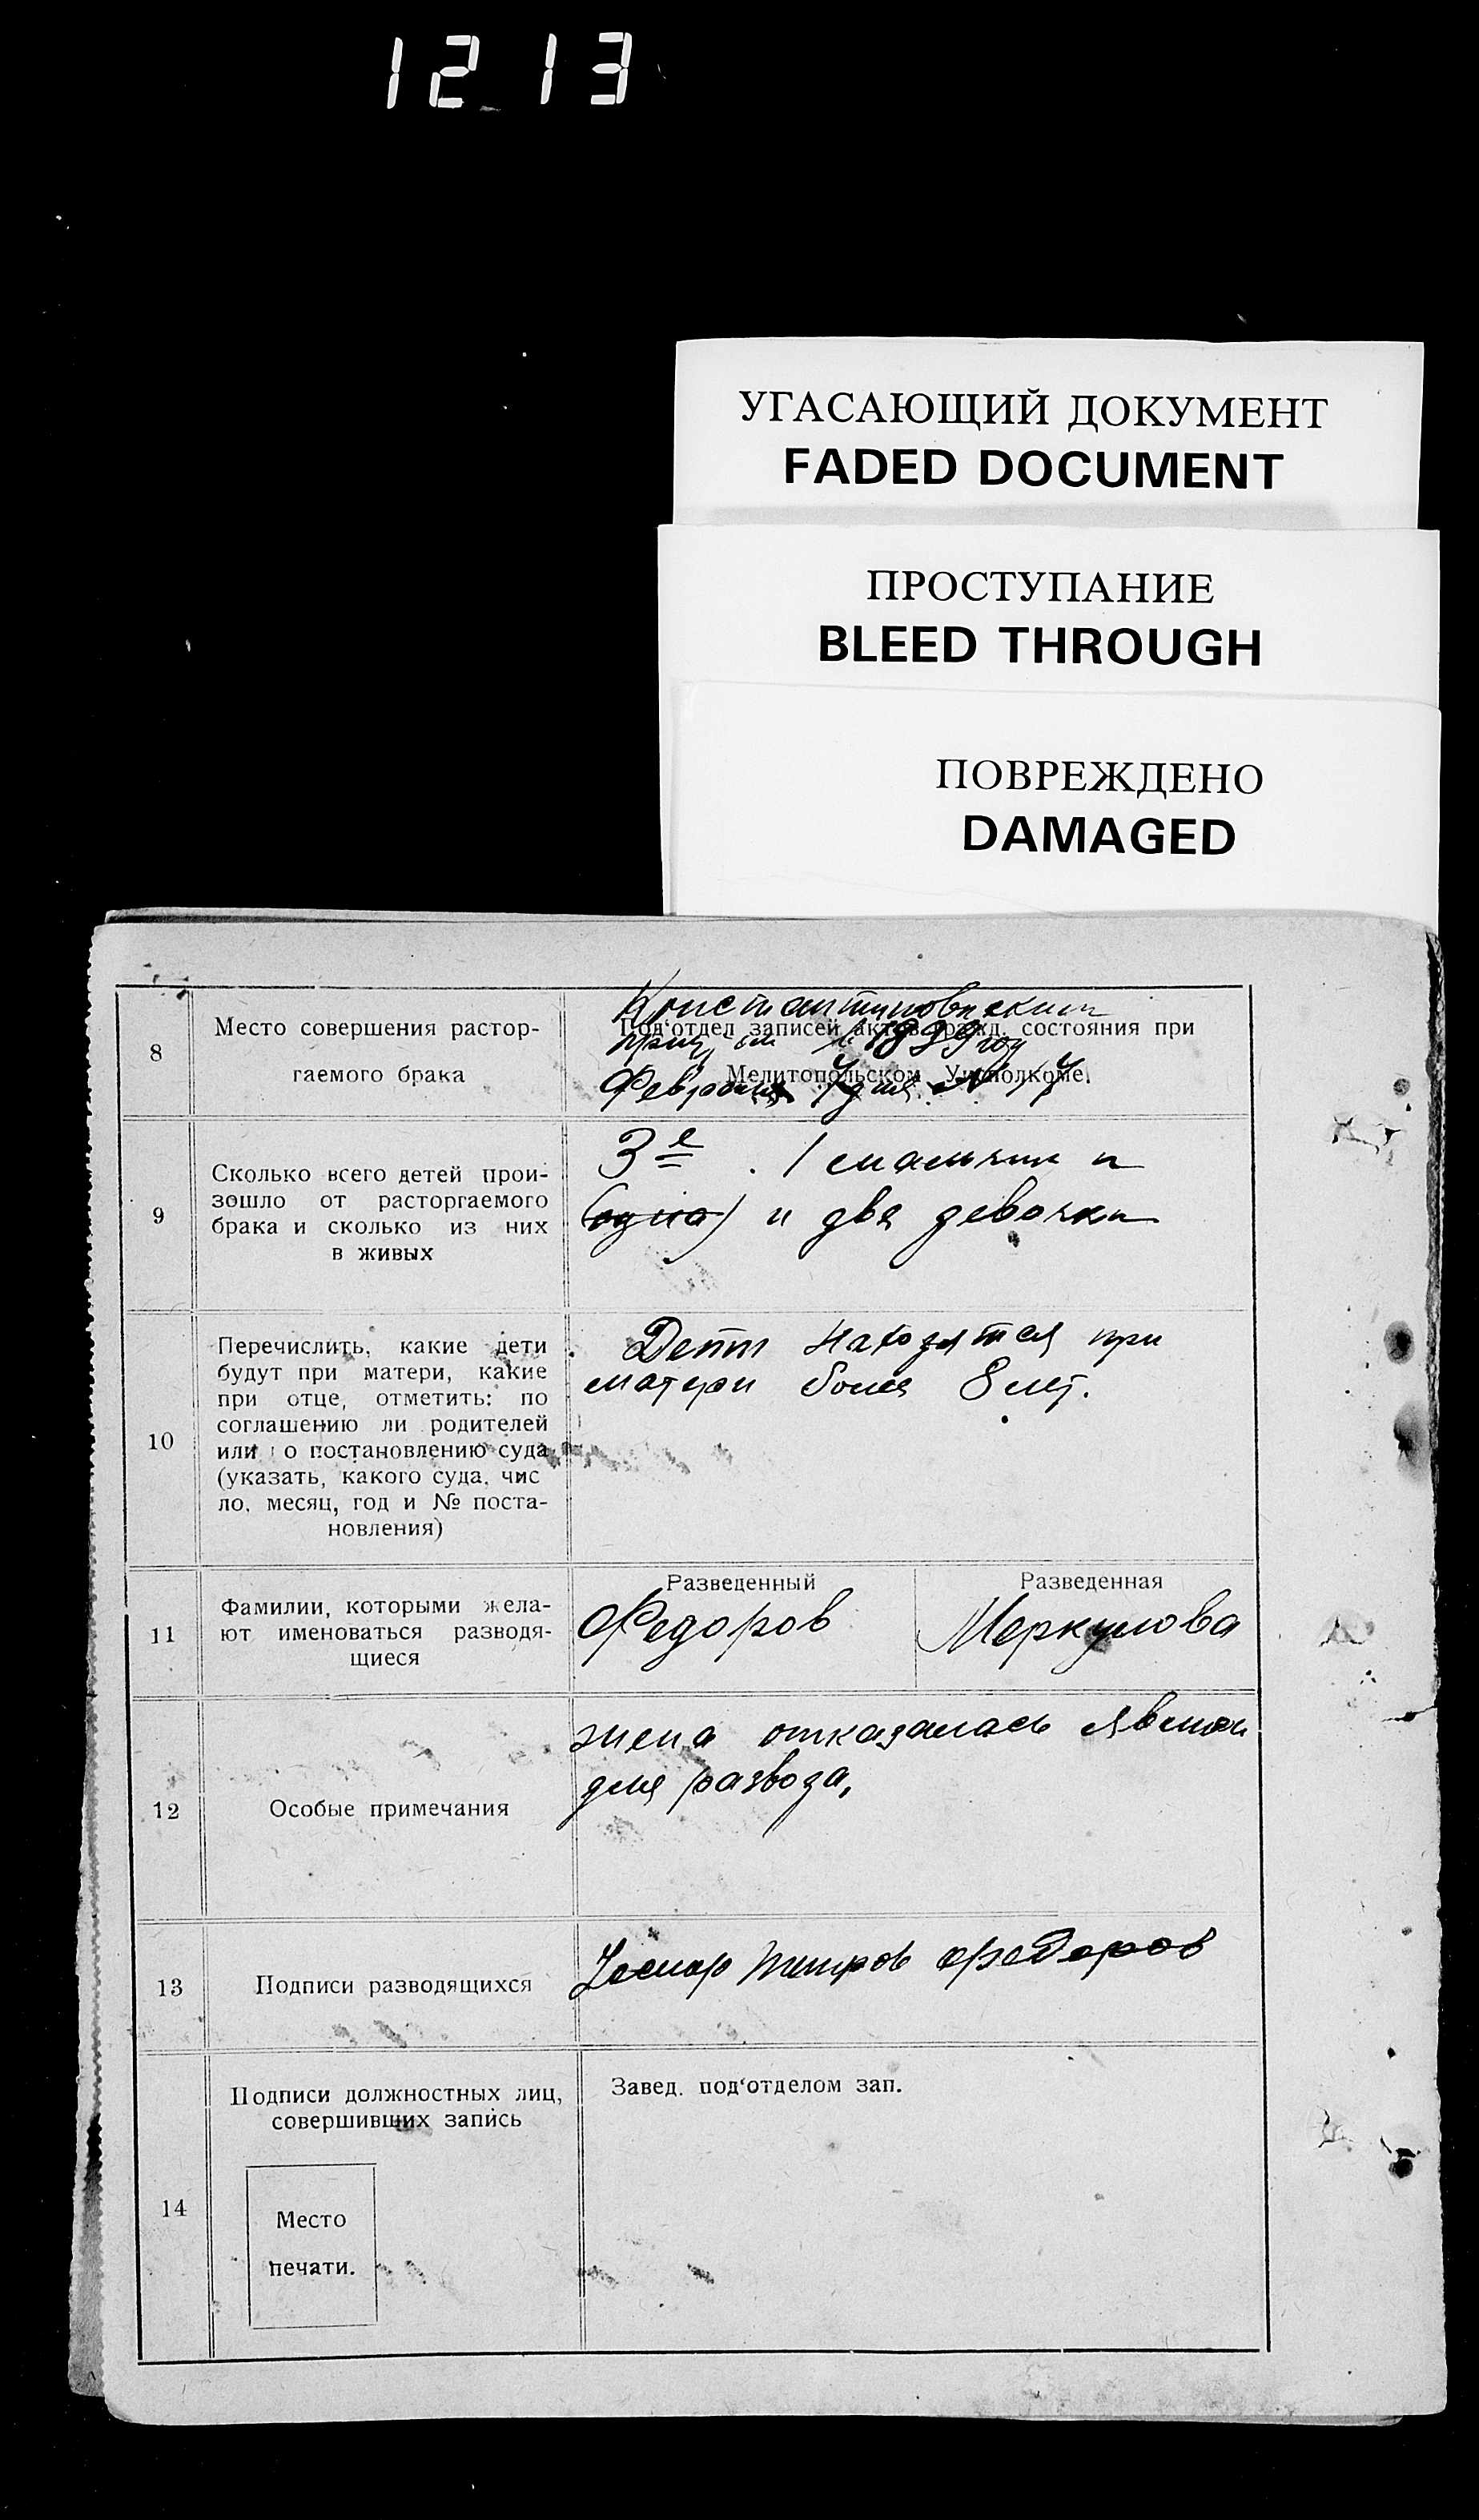 12 13
УГАСАЮЩИЙ ДОКУМЕНТ
FADED DOCUMENT
ПРОСТУПАНИЕ
BLEED THROUGH
ПОВРЕЖДЕНО
DAMAGED
8
Место совершения растор-
гаемого брака
Под‘отдел записей актов гражд. состояния при
Мелитопольском Уисполкоме.
1899 году
Февраля 7 дня №
9
Сколько всего детей прои-
зошло от расторгаемого
брака и сколько из них
в живых
3е. 1 мальчик и
(одна) и две девочки
10
Перечислить, какие дети
будут при матери, какие
при отце, отметить: по
соглашению ли родителей
или о постановлению суда
(указать, какого суда, чис
ло, месяц, год и № поста-
новления)
Дети находятся при
матери более 8 лет.
11
Фамилии, которыми жела-
ют именоваться разводя-
щиеся
Разведенный
Федоров
Разведенная
Меркулова
12
Особые примечания
жена отказалась
для развода,
13
Подписи разводящихся
Федоров
14
Подписи должностных лиц,
совершивших запись
Место
печати.
Завед. под‘отделом зап.